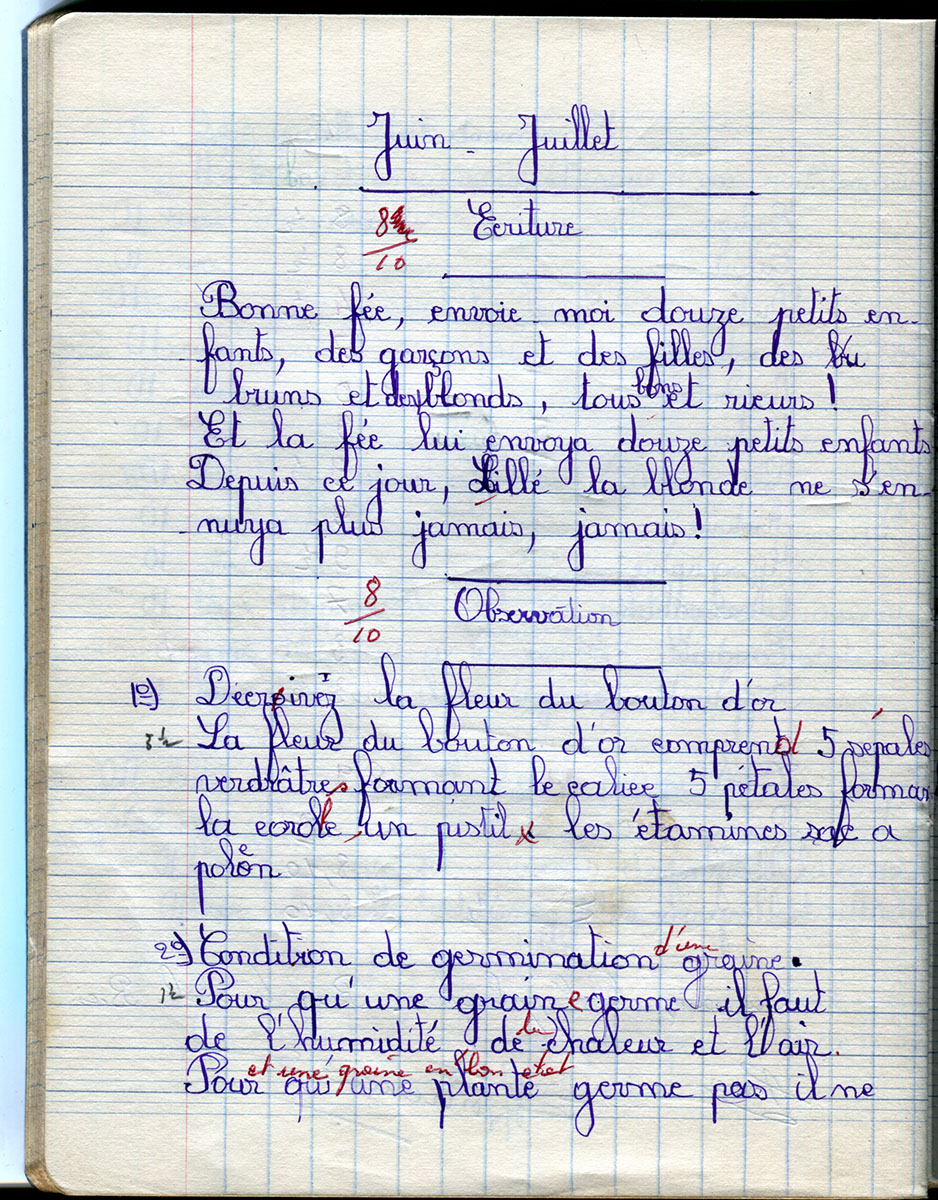 Juin - Juillet
8
10
Ecriture
Bonne fée, envoie moi douze petits en-
fants, des garçons et des filles, des
bruns et des blonds, tous bons et rieurs !
Et la fée lui envoya douze petits enfants
Depuis ce jour, Lillé la blonde ne s'en-
nuya plus jamais, jamais !
8
10
Observation
1º) Décrivez la fleur du bouton d'or
3 ½ La fleur du bouton d'or comprend 5 sépales
verdâtres formant le calice 5 pétales forman
la corolle, un pistil les étamines a
polên
2º) Condition de germination d'une graine.
1 ½ Pour qu'une graine germe il faut
de l'humidité de la chaleur et l'air.
et une graine en bon état
Pour qu'une plante germe pas il ne